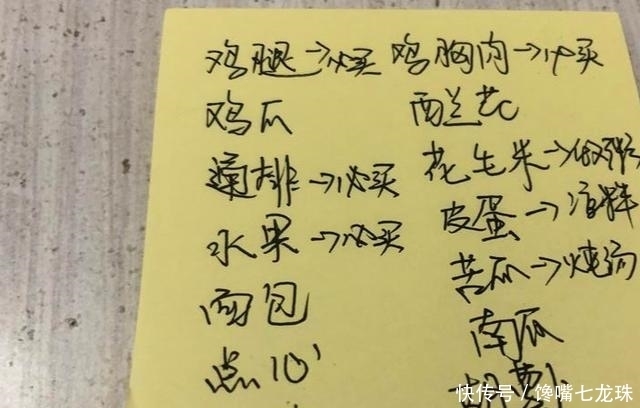 鸡腿→必买 鸡胸肉→必买
鸡爪 西兰花
排→必买 花生米→做粥
水果→必买 皮蛋→凉拌
面包 苦瓜→炖汤
点心 南瓜
胡萝卜
快传号/馋嘴七龙珠